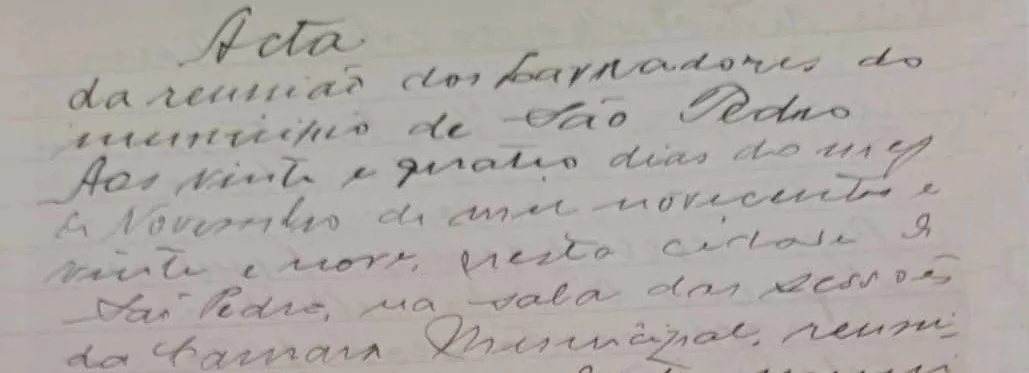 Acta
da reunião dos Lavradores do
municipio de São Pedro
Aos vinte e quatro dias do mez
de Novembro de mil novecentos e
vinte e nove, nesta cidade de
São Pedro, na sala das sessões
da Camara Municipal, reuni-